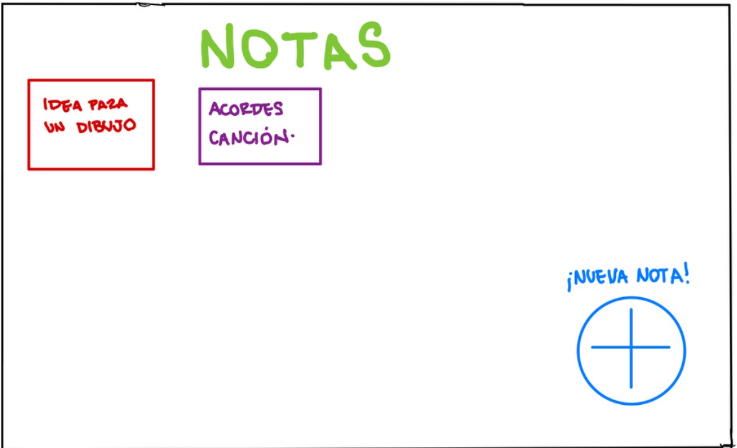 NOTAS
IDEA PARA
UN DIBUJO
ACORDES
CANCIÓN.
¡NUEVA NOTA!